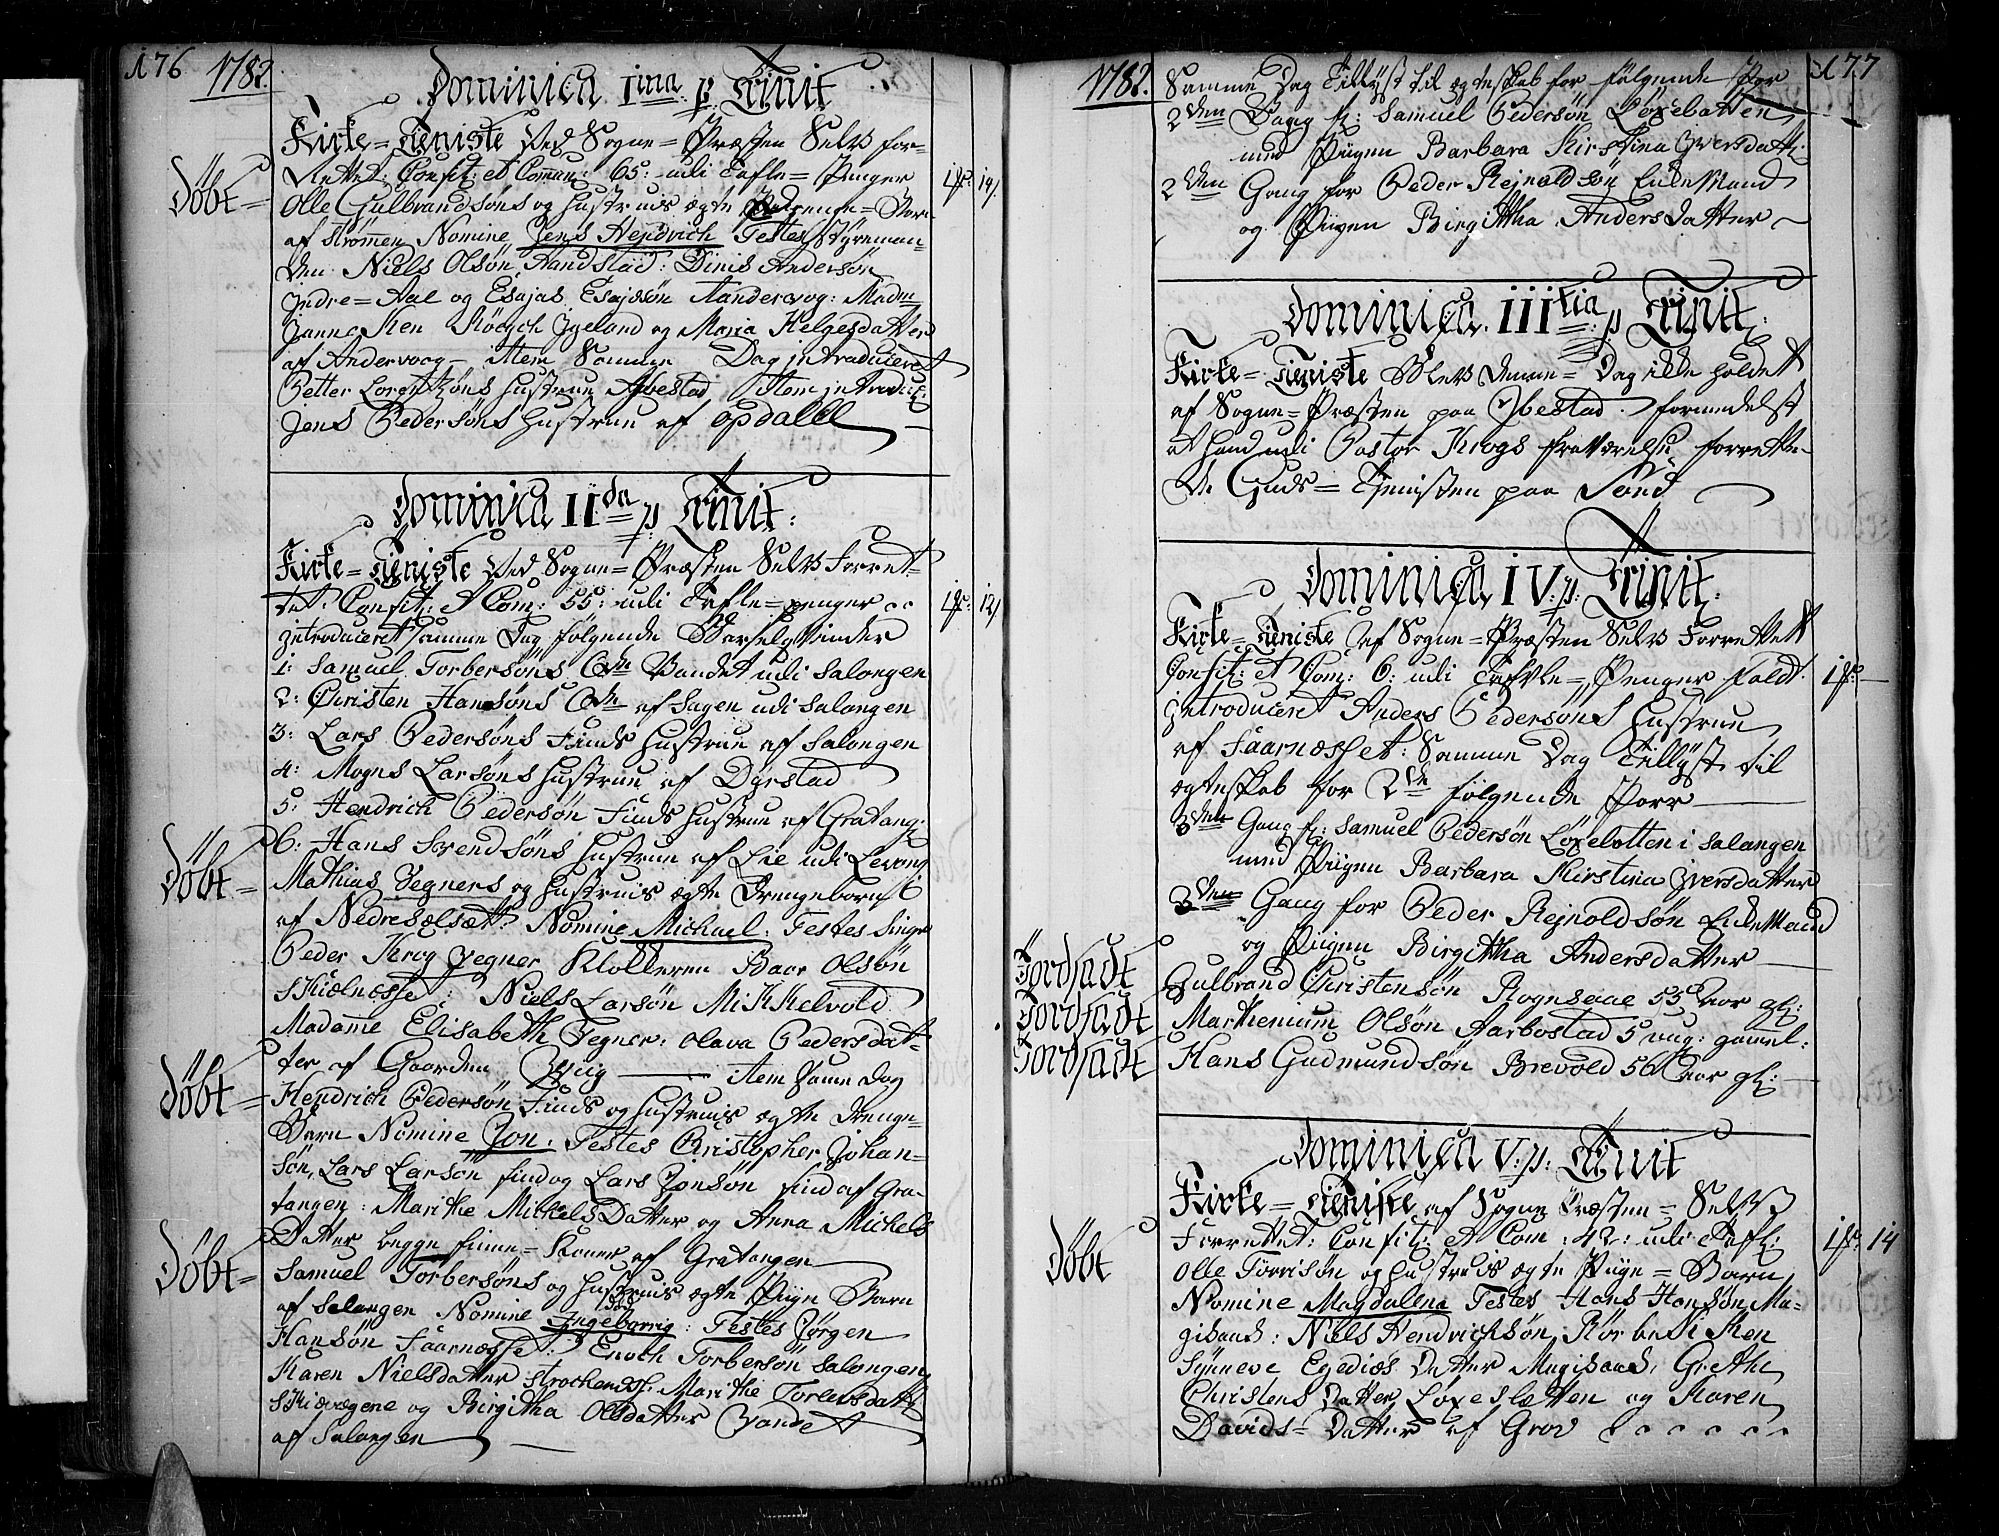 176 1782.
Dominica Ima p Trinit
Kirke=Tieniste ved Sogne=Præsten Selv for-
rettet: Confit: et Comun: 65: udi Tafle=Penger
Døbt=
Olle Gulbrandsøns og Hustrues ægte Drenge=Barn
af Strømen Nomine Jens Hejdrich Testes Styreman-
den Niels Olsøn, Handstad: Dinis Andersøn
Indre=Aal og Esajas Esajsøn Aandervog: Madm
Janna og Maria Helgesdatter
af Andervaag - item Samme Dag introduceret
Petter Lorentzøns Hustrue Ybestad Item introduc:
Jens Pedersøns Hustrue af Opdall
Dominica IIda p Trinit:
Kirke=Tieniste ved Sogne=Præsten Selv Forret-
tet. Confit: et Com: 55: udi Tafle=penger
introduceret samme Dag følgende Barselqvinder
1: Samuel Torbersøns Qde Vandet udi Salangen
2: Christen Hansøns Qde af Sagen udi Salangen
3: Lars Pedersøns Finds Hustrue af Salangen
4: Mogns Larsøns Hustrue af Dyrstad
5: Hendrich Pedersøn Finds Hustrue af Gratang:
6: Hans Svendsøns Hustrue af Lie udi Levang
Døbt=
Mathias Vegners og Hustrues ægte Drengebarn
af Nedresælsæt: Nomine Michael: Testes Singr
Peder Krog Vegner Klokkeren Baar Olsøn
Skiælnesse: Niels Larsøn Mikkelvold
Madame Elisabeth Vegner: Olava Pedersdat-
ter af Gaarden Bygig item same Dag
Døbt=
Hendrich Pedersøn Finds og Hustrues ægte Drenge-
Barn Nomine Jon: Testes Christopher Johan-
søn, Lars Larsøn find og Lars Jonsøn find af Gra-
tangen: Marithe MichelsDatter og Anna Michels
Datter begge finne=Koner af Gratangen
Døbt=
Samuel Torbersøns og Hustrues ægte Piige Barn
af Salangen Nomine Ingebarrig: Testes Jørgen
Hansøn Faarnæsset: Enoch Torbersøn Salangen
Karen Nielsdatter Marithe Torlevsdatt
og Birgitha Olsdatter Vandet
af Salangen
1782. 177
Samme Dag Tillyst til ægteskab for følgende Par
2den Gang f: Samuel Pedersøn Løxebotten
med Piigen Barbara Kirstina Iversdatt:
2den Gang for Peder Rejnoldsøn Enke Mand
og Piigen Birgittha AndersDatter
Dominica IIItia p Trinit:
Kirke=Tieniste Blev denne=Dag ikke holdet
af Sogne=Præsten paa Ybestad formedelst
at hand udi Pastor Krogs fraværelse forrette-
de Guds=Tjenisten paa Sand
Dominica IV: p: Trinit:
Kirke=Tieniste af Sogne=Præsten Selv Forrettet
Confit: et Com: 6: udi Tafvle=Penger faldt.
introduceret Anders Pedersøns Hustrue
af Faarnæsset: Samme Dag Tillyst til
ægteskab for 2de følgende Parr
3den Gang f: Samuel Pedersøn Løxebotten i Salangen
med Piigen Barbara Kirstina Iversdatter
3den Gang for Peder Rejnoldsøn Enke Mand
og Piigen Birgittha Andersdatter
Jordfæst Gulbrand Christensøn Rognsaae 55 Aar gl:
Jordfæst Marthenium Olsøn Aarbostad 5 uug: gamel:
Jordfæst Hans Gudmundsøn Brevold 56 Aar gl:
Dominica V: p: Trinit
Kirke=Tieniste af Sogne Præsten=Selv
Forrettet: Confit: et Com: 42: udi Tafl:
Døbt
Olle Torrisøn og Hustrues ægte Piige=Barn
Nomine Magdalena Testes Hans Hansøn Ma-
gisand: Niels Hendrichsøn
Synneve Egediøs Datter Magisand, Grethe
Christens Datter Løxeslætten og Karen
Davids=Datter af Grov